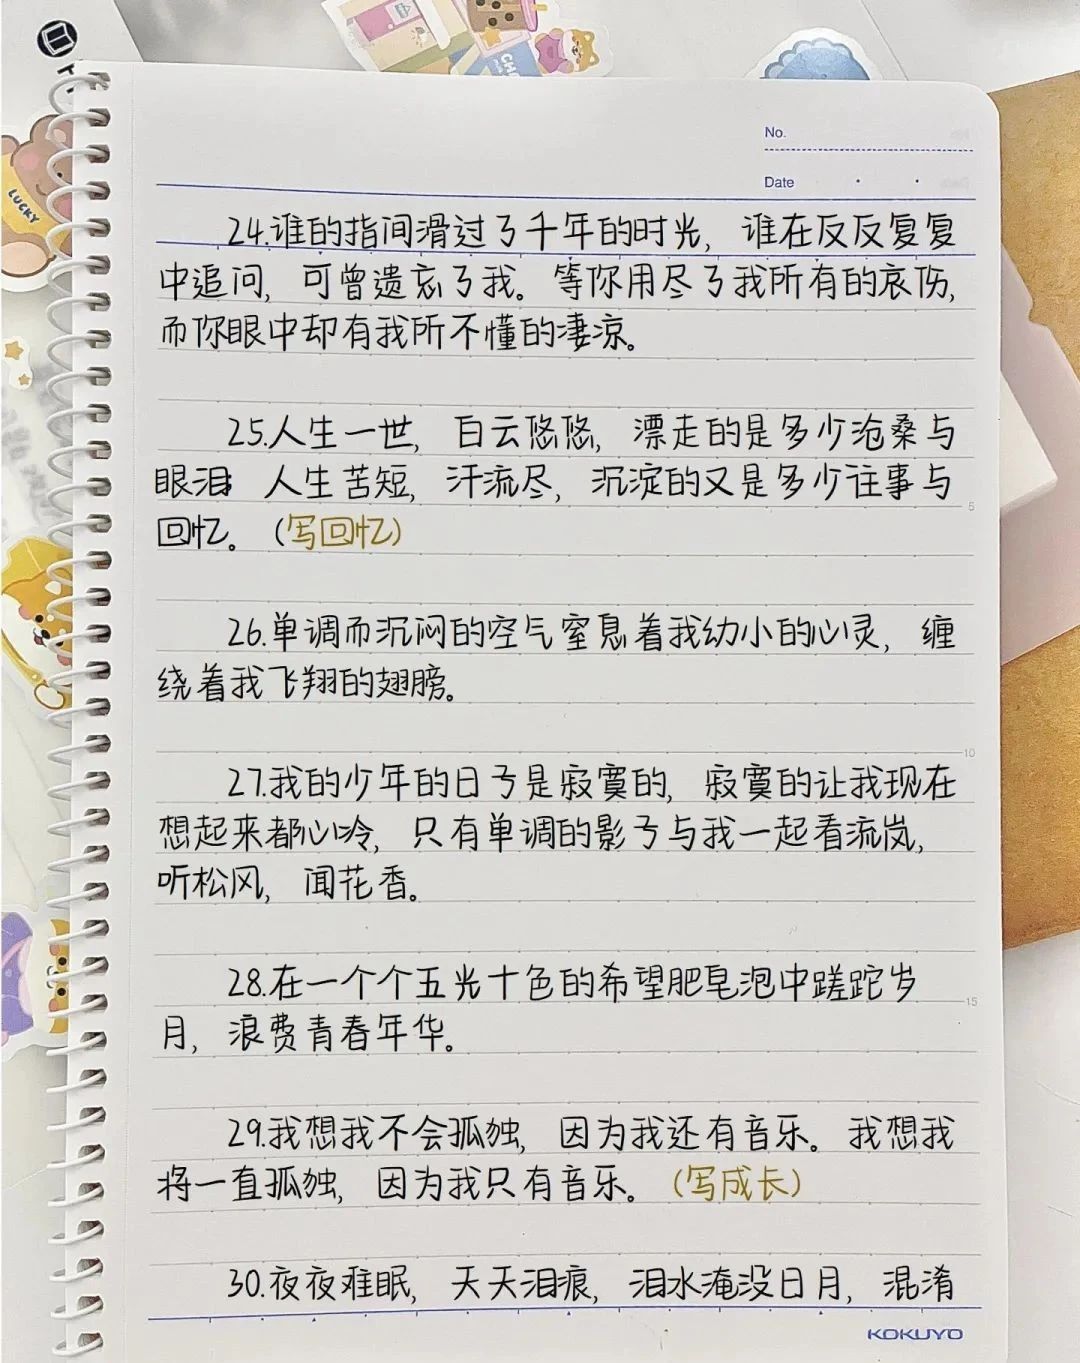 No.
Date
24.谁的指间滑过了千年的时光，谁在反反复复
中追问，可曾遗忘了我。等你用尽了我所有的哀伤，
而你眼中却有我所不懂的凄凉。
25.人生一世，白云悠悠，漂走的是多少沧桑与
眼泪；人生苦短，汗流尽，沉淀的又是多少往事与
回忆。（写回忆）
26.单调而沉闷的空气窒息着我幼小的心灵，缠
绕着我飞翔的翅膀。
27.我的少年的日子是寂寞的，寂寞的让我现在
想起来都心冷，只有单调的影子与我一起看流岚，
听松风，闻花香。
28.在一个个五光十色的希望肥皂泡中蹉跎岁
月，浪费青春年华。
29.我想我不会孤独，因为我还有音乐。我想我
将一直孤独，因为我只有音乐。（写成长）
30.夜夜难眠，天天泪痕，泪水淹没日月，混淆
KOKUYO
LUCKY
5
10
15